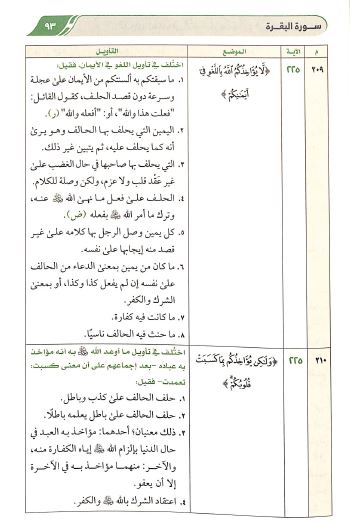 سورة البقرة
٩٣
م
الآية
الموضع
التأويل
٢٠٩
٢٢٥
﴿لَّا يُؤَاخِذُكُمُ ٱللَّهُ بِٱللَّغْوِ فِىٓ
أَيْمَٰنِكُمْ﴾
اختُلف في تأويل اللغو في الأيمان، فقيل:
١. ما سبقتكم به ألسنتكم من الأيمان على عجلة
وسرعة دون قصد الحلف، كقول القائل:
"فعلت هذا والله"، أو: "أفعله والله" (ر).
٢. اليمين التي يحلف بها الحالف وهو يرى
أنه كما يحلف عليه، ثم يتبين غير ذلك.
٣. التي يحلف بها صاحبها في حال الغضب على
غير عَقْد قلب ولا عزم، ولكن وصلة للكلام.
٤. الحلف على فعل ما نهى الله ﷻ عنه،
وترك ما أمر الله ﷻ بفعله (ض).
٥. كل يمين وصل الرجل بها كلامه على غير
قصد منه إيجابها على نفسه.
٦. ما كان من يمين بمعنى الدعاء من الحالف
على نفسه إن لم يفعل كذا وكذا، أو بمعنى
الشرك والكفر.
٧. ما كانت فيه كفارة.
٨. ما حنث فيه الحالف ناسيًا.
٢١٠
٢٢٥
﴿وَلَٰكِن يُؤَاخِذُكُم بِمَا كَسَبَتْ
قُلُوبُكُمْ﴾
اختُلف في تأويل ما أوعد الله ﷻ به أنه مؤاخذ
به عباده -بعد إجماعهم على أن معنى كسبت:
تعمدت- فقيل:
١. حلف الحالف على كذب وباطل.
٢. حلف الحالف على باطل يعلمه باطلًا.
٣. ذلك معنيان؛ أحدهما: مؤاخذ به العبد في
حال الدنيا بإلزام الله ﷻ إياه الكفارة منه،
والآخر: منهما مؤاخذ به في الآخرة
إلا أن يعفو.
٤. اعتقاد الشرك بالله ﷻ والكفر.